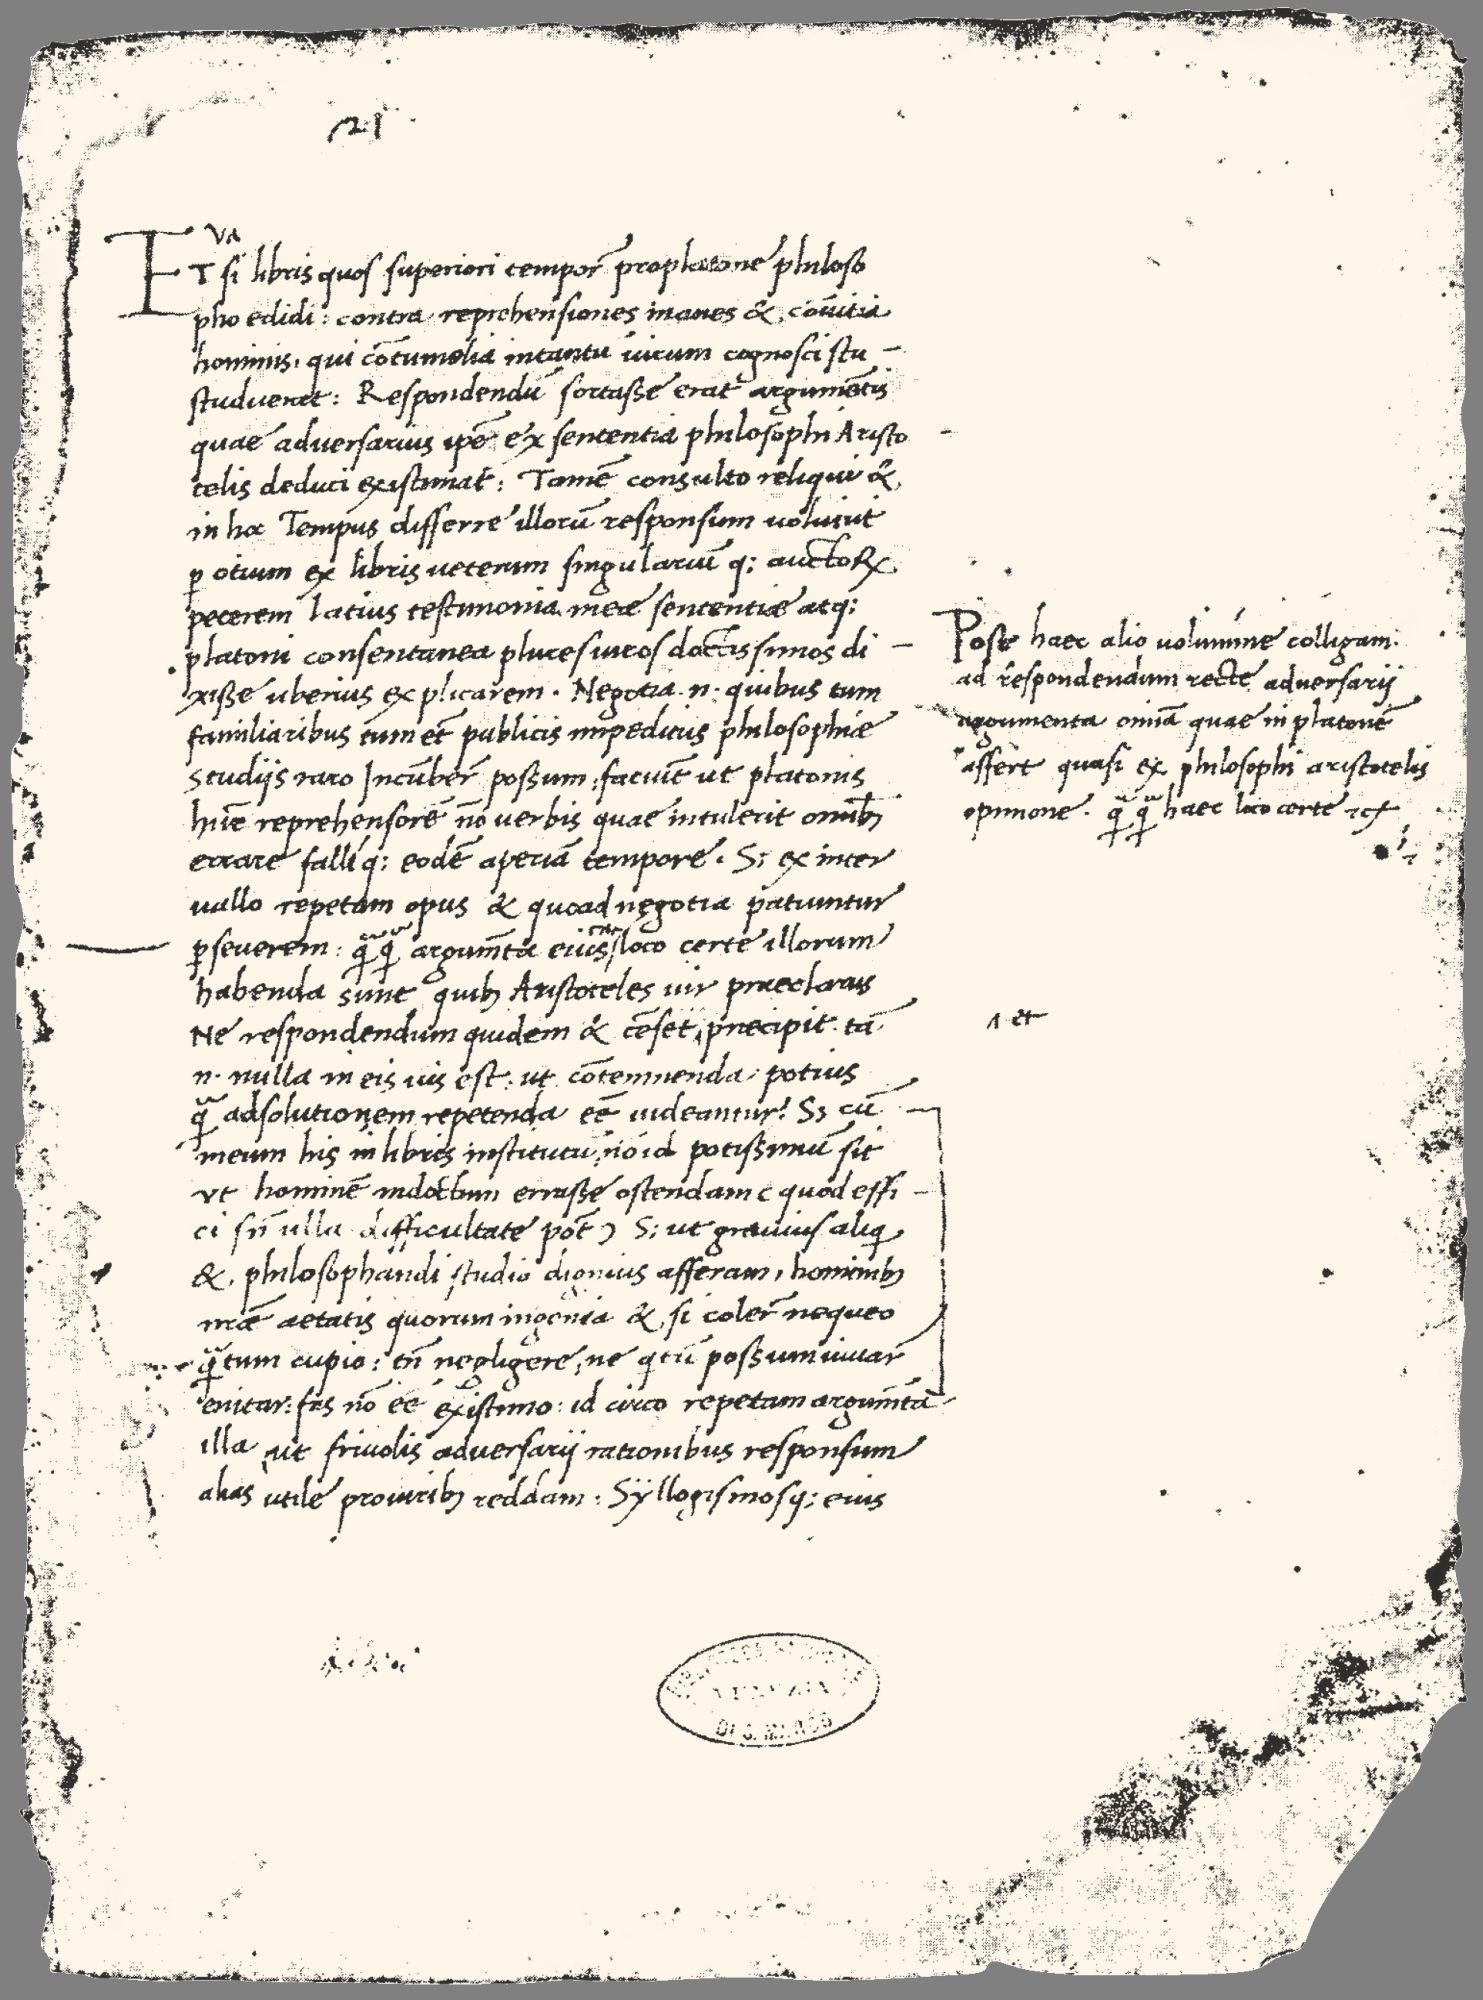 21
va
ET si libris quos superiori tempor̄ pro platone philoso
pho edidi: contra reprehensiones inanes &, cōvitia
hominis, qui cōtumelia in tantū virum cognosci stu –
studueret: Respondendū fortasse erat argumētis
quae adversarius ipē ex sententia philosophi Aristo
telis deduci existimat: Tamē consulto reliqui &,
in hoc Tempus differre illorū responsum
ꝑ otium ex libris veterum singulariū q; auctoꝝ
peterem latius testimonia meae sententiae atq;
platoni consentanea plures viros doctissimos di –
xisse uberius explicarem. Negotia .n. quibus tum
familiaribus tum et̄ publicis impeditus philosophiae
studijs raro Incūber̄ possum, faciūt ut platonis
hūc reprehensorē nō verbis quae intulerit omīb;
errare fallíq; eodē aperiā tempore. S; ex inter
vallo repetam opus & quoad negotia patiuntur
ꝑseverem: q̄q̄ argumēta eius loco certe illorum
habenda sunt quib; Aristoteles vir praeclarus
Ne respondendum quidem & cēset, praecipit. tā
n. nulla in eis vis est: ut cōtemnenda potius
q̄ ad solutionem repetenda eē videantur! S; cū
meum his in libris institutū, nō id potissimū sit
ut hominē indoctum errasse ostendam ( quod effi –
ci sn̄ ulla difficultate pōt ) S; ut gravius aliq
&, philosophandi studio dignius afferam, hominib;
nr̄ae aetatis quorum ingenia &, si coler̄ nequeo
q̄tum cupio: tn̄ negligere, ne q̄tū possum iuvar
enitar: fas nō eē existimo: id circo repetam argumēta
illa, ut frivolis adversarij rationibus responsum
alias utile pro virib; reddam: Syllogismosq; eius
Posteˊ haec alio volumine colligam.
ad respondendum recte adversarij
argumenta omīa quae in platonē
affert quasi ex philosophi aristotelis
opinione. q̄q̄ haec loco certe
et
DI S. MARCO